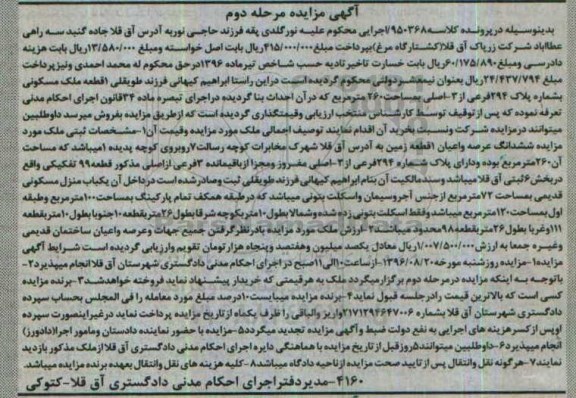 آگهی مزایده مرحله دوم
بدینوسیله در پرونده کلاسه ۹۵۰۳۶۸/اجرایی محکوم علیه نورگلدی پقه فرزند حاجی نوریه آدرس آق قلا جاده گنبد سه راهی
عطااباد شرکت زرپاک آق قلا(کشتارگاه مرغ)بپرداخت مبلغ ۴۱۵/۰۰۰/۰۰۰ریال بابت اصل خواسته ومبلغ ۱۳/۵۸۰/۰۰۰ریال بابت هزینه
دادرسی ومبلغ ۶۰/۱۷۵/۸۹۰ریال بابت خسارت تاخیر تادیه حسب شاخص تیرماه ۱۳۹۶درحق محکوم له محمد احمدی ونیز پرداخت
مبلغ ۲۴/۴۳۷/۷۹۴ریال بعنوان نیمعشر دولتی محکوم گردیده است دراین راستا ابراهیم کیهانی فرزند طویقلی ۱قطعه ملک مسکونی
بشماره پلاک ۲۹۴فرعی از۳-اصلی بمساحت۲۶۰مترمربع که درآن احداث بنا گردیده دراجرای تبصره ماده ۳۴قانون اجرای احکام مدنی
تعرفه نموده که پس ازتوقیف توسط کارشناس منتخب ارزیابی وقیمتگذاری گردیده است که ازطریق مزایده بفروش میرسد داوطلبین
میتوانند درمزایده شرکت ونسبت بخرید آن اقدام نمایند توصیف اجمالی ملک مورد مزایده وقیمت آن۱-مشخصات ثبتی ملک مورد
مزایده ششدانگ عرصه واعیان ۱قطعه زمین به آدرس آق قلا شهرک مخابرات کوچه رسالت۷روبروی کوچه پدیده ۱میباشد که مساحت
آن۲۶۰مترمربع بوده ودارای پلاک شماره ۲۹۴فرعی از۳-اصلی مفروز ومجزا ازباقیمانده ۲فرعی ازاصلی مذکور قطعه۹۹ تفکیکی واقع
دربخش۶ثبتی آق قلا میباشد وسند مالکیت آن بنام ابراهیم کیهانی فرزند طویقلی ثبت وصادرشده است درداخل آن یکباب منزل مسکونی
قدیمی بمساحت ۷۲مترمربع ازجنس آجروسیمان واسکلت بتونی میباشد که درطبقه همکف تمام پارکینگ بمساحت۱۰۰مترمربع وطبقه
اول بمساحت۱۲۰مترمربع میباشد وفقط اسکلت بتونی زده شده وشمالا بطول ۱۰متربکوچه شرقا بطول۲۶متربقطعه۱۰۰جنوبا بطول۱۰متربقطعه
۱۱۱وغربا بطول۲۶متربقطعه۹۸محدود میباشد۲-ارزش ملک مورد مزایده بادرنظرگرفتن جمیع جهات وعرصه واعیان ساختمان قدیمی
وغیره جمعا به ارزش ۱/۰۰۷/۵۰۰/۰۰۰ریال معادل یکصد میلیون وهفتصد وپنجاه هزارتومان تقویم وارزیابی گردیده است شرایط آگهی
مزایده۱-مزایده روزشنبه مورخه۱۳۹۶/۰۸/۲۰-ازساعت۱۰الی۱۱صبح دراجرای احکام مدنی دادگستری شهرستان آق قلا انجام میپذیرد۲-
باتوجه به اینکه مزایده درمرحله دوم برگزارمیگردد ملک به هرقیمتی که خریدار پیشنهاد نماید فروخته خواهدشد۳-برنده مزایده
کسی است که بالاترین قیمت رادرجلسه قبول نماید۴-برنده مزایده میبایست۱۰درصد مبلغ مورد معامله را فی المجلس بحساب سپرده
دادگستری شهرستان آق قلا بشماره ۲۱۷۱۲۹۶۴۷۰۰۶واریز والباقی را ظرف یکماه ازتاریخ مزایده پرداخت نماید درغیراینصورت سپرده
اوپس ازکسرهزینه های اجرایی به نفع دولت ضبط وآگهی مزایده تجدید میگردد۵-مزایده با حضور نماینده دادستان ومامور اجرا(دادورز)
انجام میپذیرد۶-داوطلبین میتوانند۵روزقبل ازتاریخ مزایده با هماهنگی دایره اجرای احکام مدنی دادگستری آق قلا ازملک مذکور بازدید
نمایند۷-هرگونه نقل وانتقال پس ازتایید صحت مزایده ازناحیه دادگاه میباشد۸-کلیه هزینه های نقل وانتقال بعهده برنده مزایده میباشد
۴۱۶۰-مدیردفتراجرای احکام مدنی دادگستری آق قلا-کتوکی